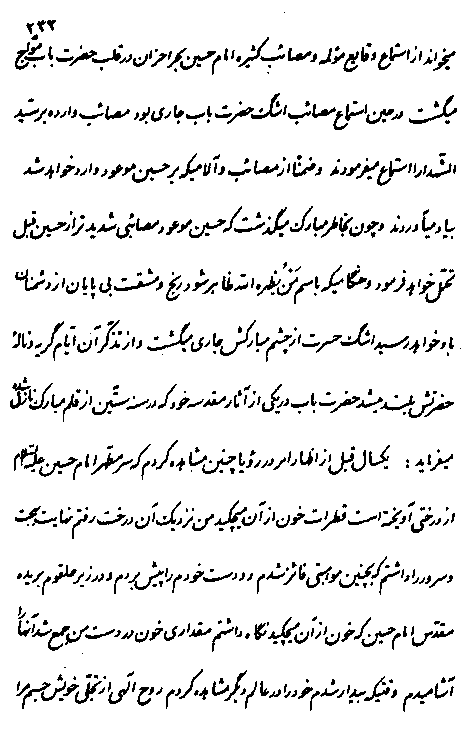 ۲۳۳
میخواند از استماع وقایع مؤلمه و مصائب کثیره امام حسین بحر احزان در قلب حضرت باب موّاج
میگشت و در حین استماع مصائب اشک حضرت باب جاری بود مصائب وارده بر سیّد
الشّهدا را استماع میفرمودند و ضمناً از مصائب و آلامیکه بر حسین موعود وارد خواهد شد
بیاد میآوردند و چون بخاطر مبارک میگذشت که حسین موعود مصائبی شدید تر از حسین قبل
تحمّل خواهد فرمود و هنگامیکه باسم مَنْ یُظهره الله ظاهر شود رنج و مشقّت بی پایان از دشمنان
باو خواهد رسید اشک حسرت از چشم مبارکش جاری میگشت و از تذکّر آن ایّام گریه و نالهٔ
حضرتش بلند میشد حضرت باب در یکی از آثار مقدسه خود که در سنه ستّین از قلم مبارک نازل شده
میفرماید : یکسال قبل از اظهار امر در رؤیا چنین مشاهده کردم که سر مطهّر امام حسین علیه السّلام
از درختی آویخته است قطرات خون از آن میچکید من نزدیک آن درخت رفتم نهایت بهجت
و سرور را داشتم که بچنین موهبتی فائز شدم و دست خودم را پیش بردم و در زیر حلقوم بریده
مقدّس امام حسین که خون از آن میچکید نگاه داشتم مقداری خون در دست من جمع شد آنها را
آشامیدم وقتیکه بیدار شدم خود را در عالم دیگر مشاهده کردم روح الهی از تجلّی خویش جسم مرا